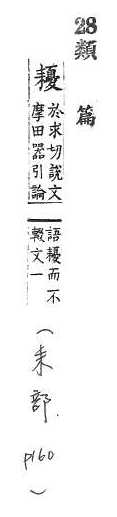 28類篇
耰於求切說文摩田器引論語耰而不輟文一
(耒部. p160)